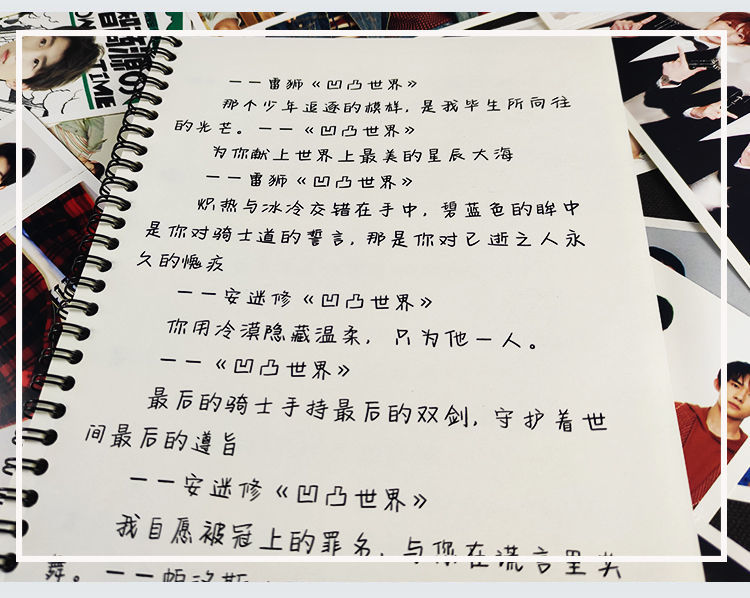 TIME
——雷狮《凹凸世界》
那个少年追逐的模样，是我毕生所向往
的光芒。——《凹凸世界》
为你献上世界上最美的星辰大海
——雷狮《凹凸世界》
炽热与冰冷交错在手中，碧蓝色的眸中
是你对骑士道的誓言，那是你对已逝之人永
久的愧疚
——安迷修《凹凸世界》
你用冷漠隐藏温柔，只为他一人。
——《凹凸世界》
最后的骑士手持最后的双剑，守护着世
间最后的遵旨
——安迷修《凹凸世界》
我自愿被冠上的罪名，与你在谎言里共
舞。——帕洛斯